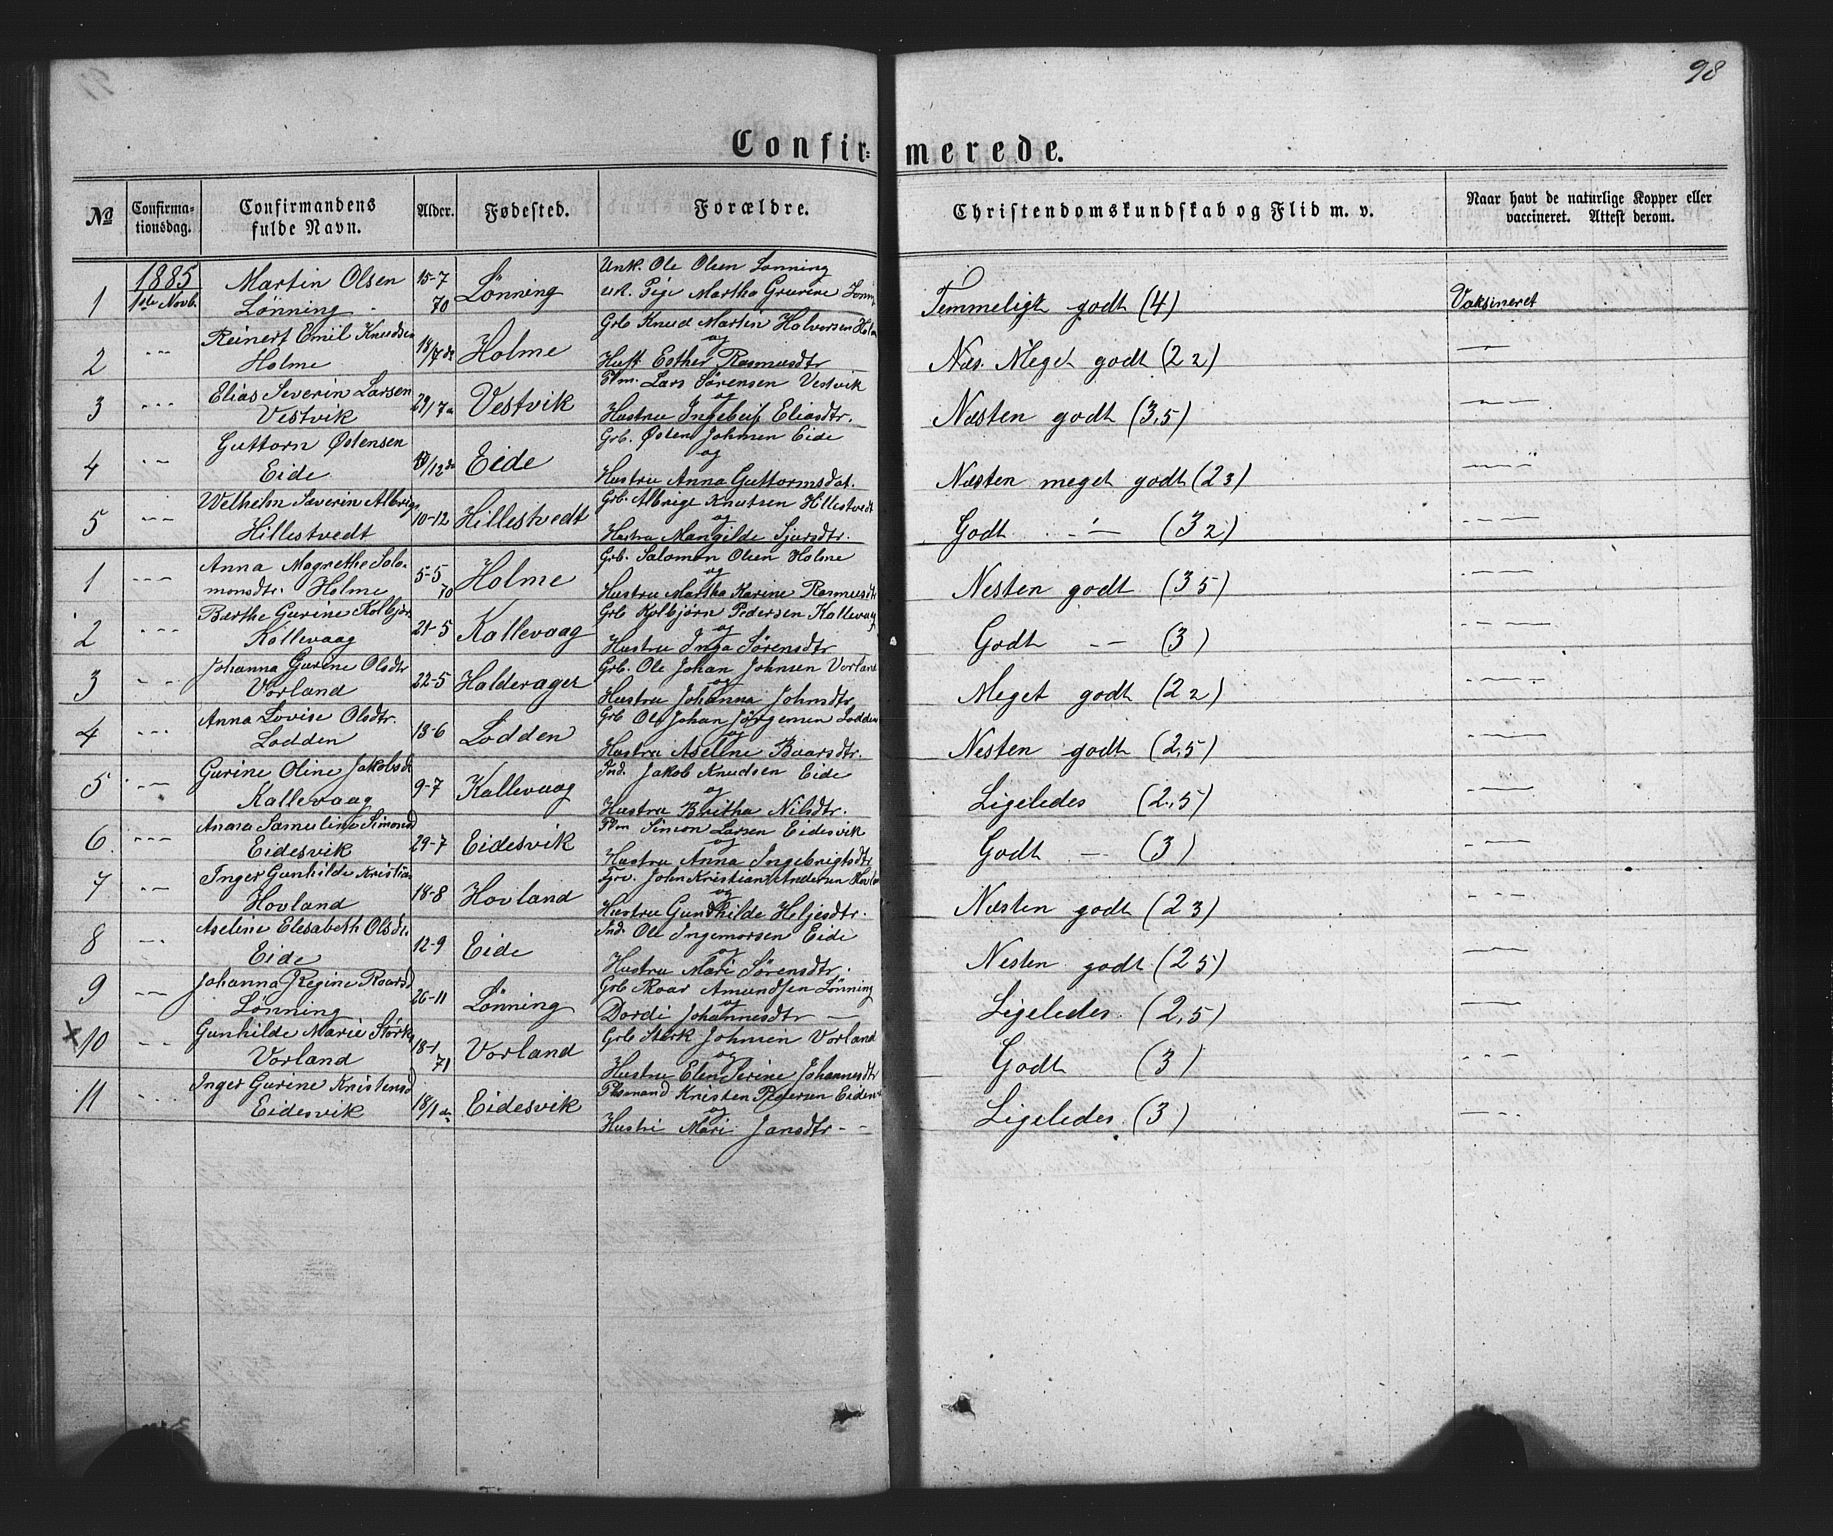 98
Confir- merede.
No Confirma-tionsdag. Confirmandens fulde Navn. Alder. Fødested. Forældre. Christendomskundskab og Flid m. v. Naar havt de naturlige Kopper eller vaccineret. Attest derom.
1885 Martin Olsen 15-7 Unk. Ole Olsen Lønning
1 1ste Novb. Lønning 70 Lønning Pige Martha Gurine Temmeligt godt (4) Vaksineret
Reinert Emil Knudsen Grb Knud Martin Halvorsen
2 Holme 18/7 do Holme og Hust Esther Rasmusdtr Næs. Meget godt (22)
Elias Severin Larsen Plm. Lars Sørensen Vestvik
3 Vestvik 29/7 Vestvik og Hustru Eliasdtr. Næsten godt (3,5)
Guttorm Østensen Grb. Østen Johnsen Eide
4 Eide /12 do Eide og Hustru Anna Guttormsdat. Næsten meget godt (23)
Welhelm Severin Albrigs Grb. Albrigt Knutsen Hillestvedt
5 Hillestvedt 10-12 Hillestvedt og Hustru Mangilde Sjursdtr. Godt (32)
Anna Magrethe Salo- Grb. Salomon Olsen Holme
1 monsdtr. Holme 5-5 70 Holme og Hustru Martha Karine Rasmusdtr Nesten godt (35)
Barthe Gurine Kolbjør Grb Kolbjørn Pedersen Kallevaag
2 Kallevaag 21-5 Kallevaag og Hustru Inga Sørensdtr Godt (3)
Johanna Gurine Olsdtr Grb. Ole Johan Johnsen Vorland
3 Vorland 22-5 Halderager og Hustru Johanna Johnsdtr Meget godt (22)
Anna Lovise Olsdtr. Grb Ole Johan Jørgensen Lodden
4 Lodden 18-6 Lodden og Hustru Aseline Baarsdtr. Nesten godt (2,5)
Gurine Oline Jakobsd Ind. Jakob Knudsen Eide
5 Kallevaag 9-7 Kallevaag og Hustru Britha Nilsdtr. Ligeledes (2,5)
Anna Samuline Simonsd Plm Simon Larsen Eidesvik
6 Eidesvik 29-7 Eidesvik og Hustru Anna Ingebrigtsdtr Godt (3)
Inger Gunhilde Kristian John Kristian Andersen
7 Hovland 18-8 Hovland og Hustru Gundhilde Heljesdtr. Næsten godt (23)
Aseline Elesabeth Olsdtr Ind. Ole Ingemorsen Eide
8 Eide 12-9 Eide og Hustru Mari Sørensdtr. Nesten godt (25)
Johanna Regine Roarsd Grb Roar Amundsen Lønning
9 Lønning 26-11 Lønning og Dordi Johannesdtr Ligeledes (2,5)
Gunhilde Marie Størk Grb Størk Johnsen Vorland
x 10 Vorland 18-1 71 Vorland og Hustru Elen Serine Johannesdtr Godt (3)
Inger Gurine Kristensd Plsmand Kristen Pedersen
11 Eidesvik 18/1 do Eidesvik og Hustri Mari Jansdtr Ligeledes (3)